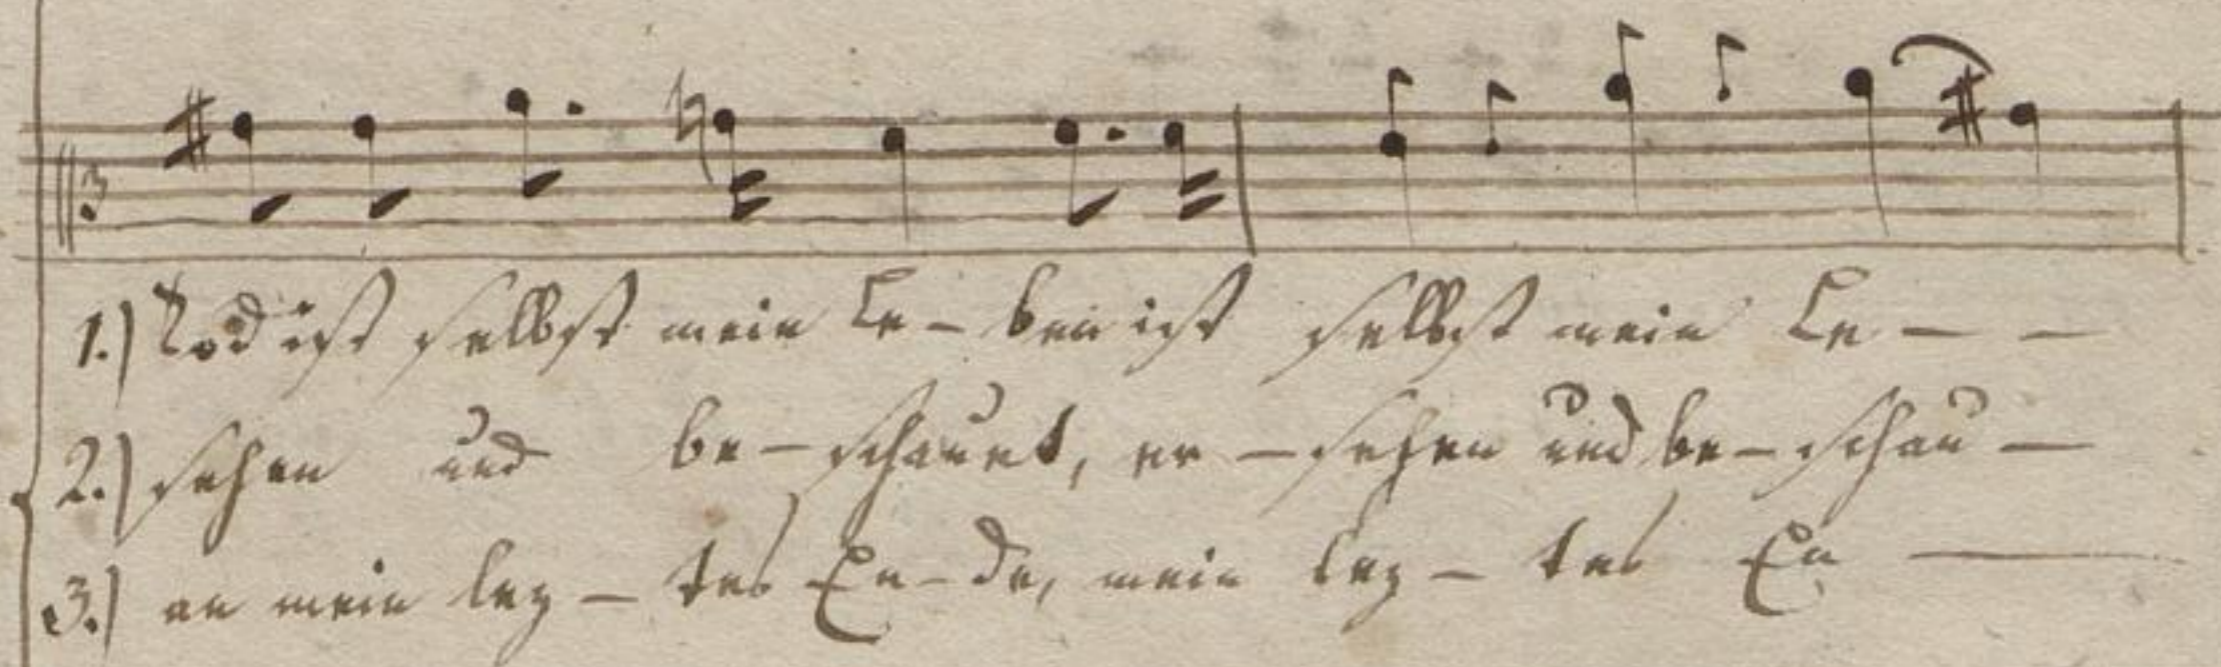 1.) Tod ist selbst mein Le - ben ist selbst mein Le - -
2.) sehen und be - schauet, er - sehen und be - schau -
3.) an mein lez - tes En - de, mein lez - tes En -